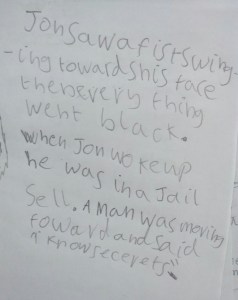 Jonsawafistswing-
-ing towardshis face
thenevery thing
went black.
when Jon wokeup
he was in a Jail
Sell. A Man was moving
foward and said
"I know secerets".